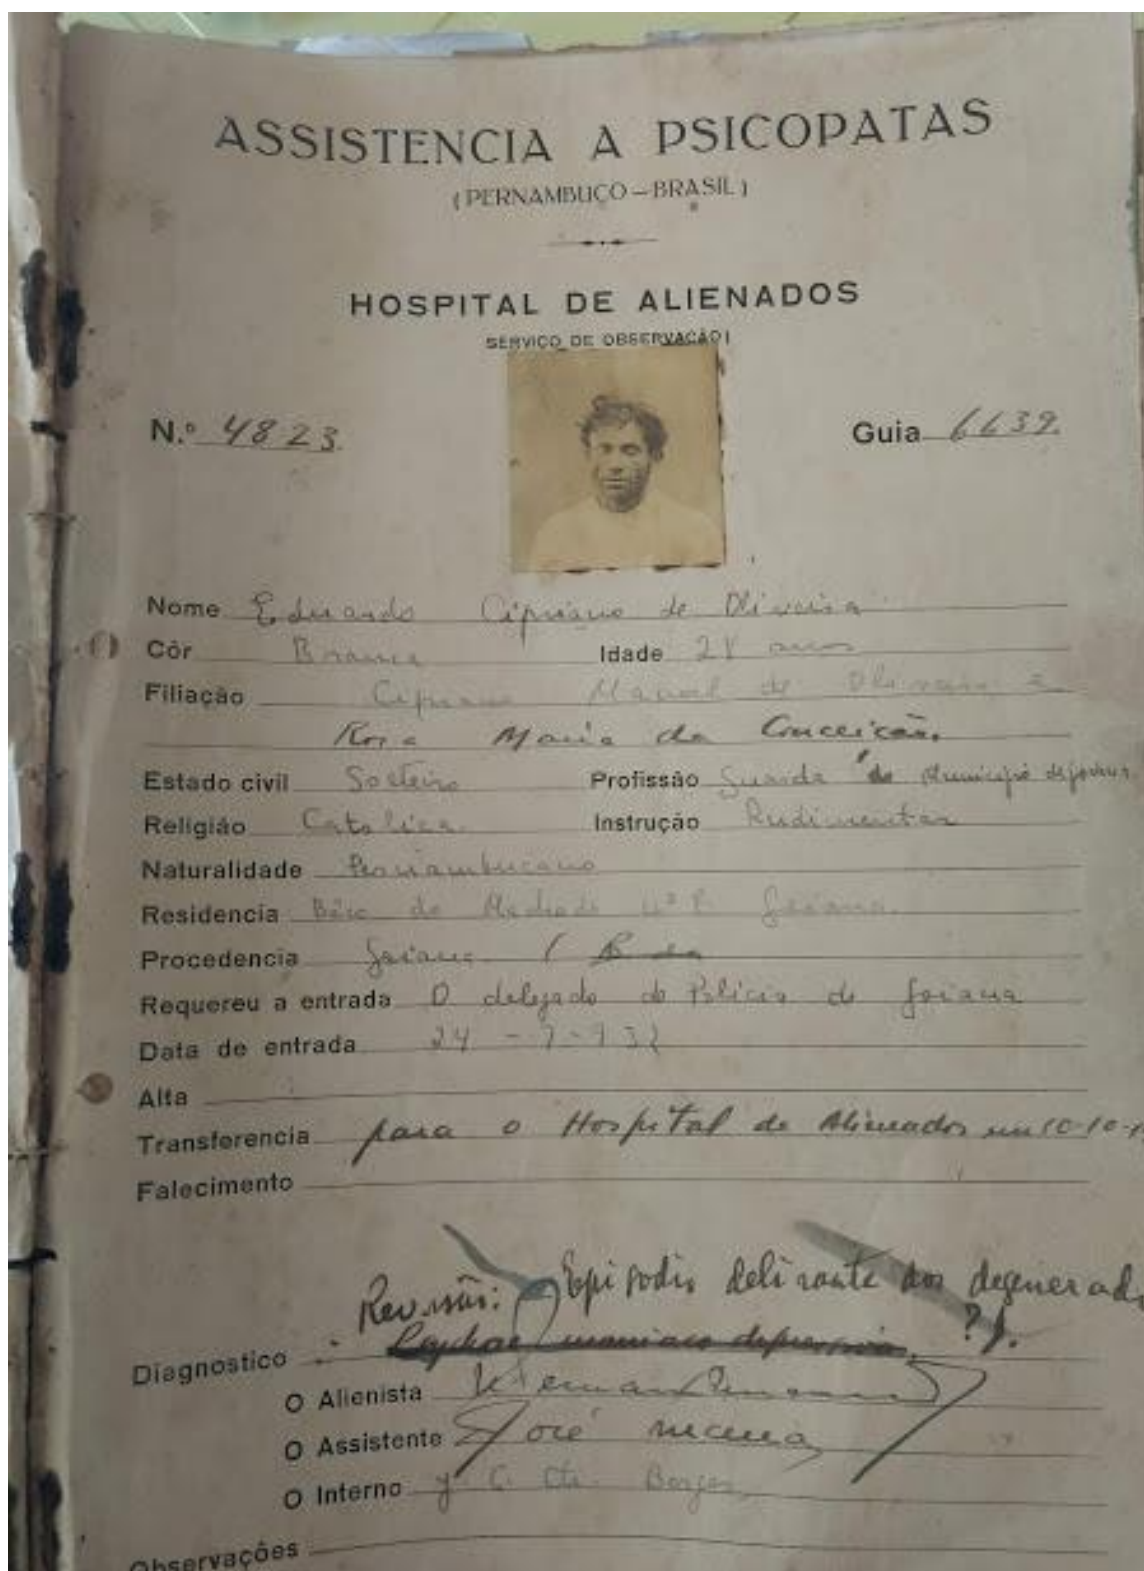 ASSISTENCIA A PSICOPATAS
(PERNAMBUCO—BRASIL)
HOSPITAL DE ALIENADOS
SERVIÇO DE OBSERVAÇÃO
N.º 4823. Guia 6639.
Nome Eduardo Cipriano de Oliveira
Côr Branca Idade 28 anos
Filiação Cipriano Manoel de Oliveira e
Rosa Maria da Conceição.
Estado civil Solteiro Profissão Guarda do Municipio de
Religião Catolica Instrução Rudimentar
Naturalidade Pernambucano
Residencia Bêco do nº Goiana.
Procedencia Goiana
Requereu a entrada O delegado de Policia de Goiana
Data de entrada 24 - 9 - 932
Alta
Transferencia para o Hospital de Alienados em 10-10-
Falecimento
Revisão: Episodio delirante dos degenerad
?).
Diagnostico maniaco depressiva.
O Alienista
O Assistente José Lucena
O Interno Borges
Observações